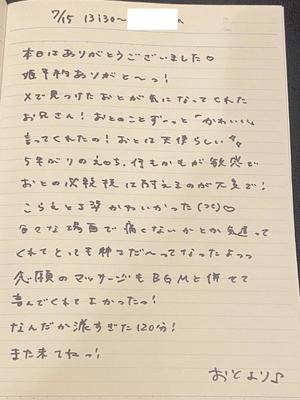 7/15 13:30〜
本日はありがとうございました♡
姫予約ありがと〜っ!
Xで見つけたおとが気になってくれた
お兄さん!おとのことずーっと「かわいい」
言ってくれたの!おとは天使らしい
5年ぶりのえっち、何もかもが敏感で
おとの必殺技は耐えるのが大変で!
こらえてる姿かわいかった(つ⊂)♡
色々な場面で痛くないかとか気遣って
くれてとっても紳士だ〜ってなったよっっ
念願のマッサージもBGMと併せて
喜んでくれてよかったっ!
なんだか濃すぎた120分!
また来てねっ!
おとより♪